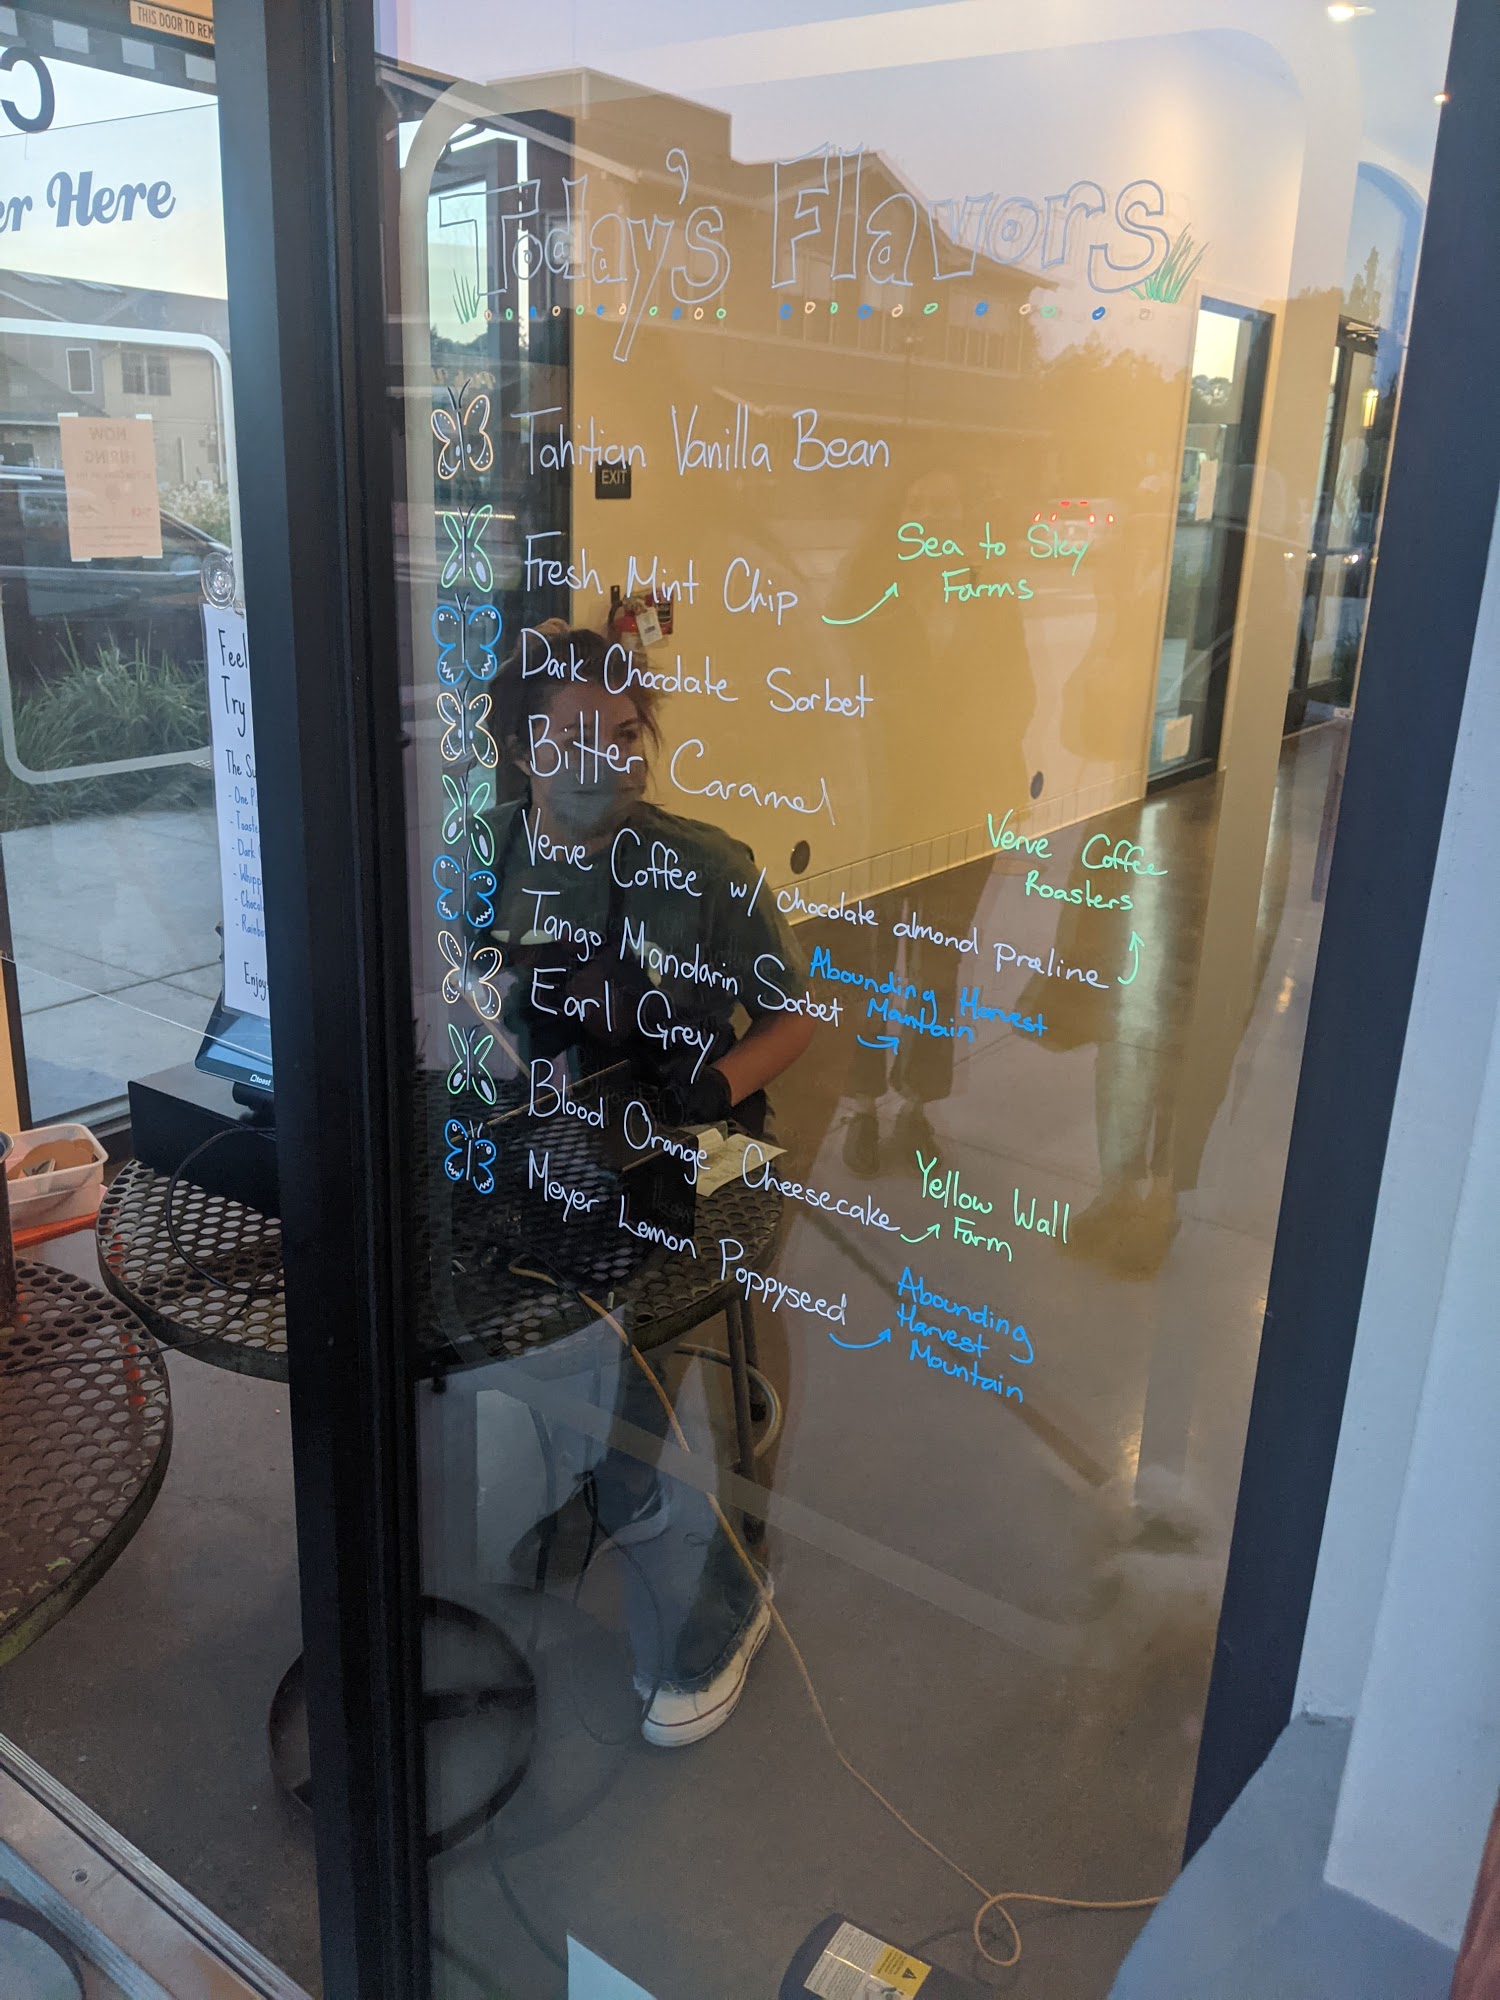 THIS DOOR TO REM
C
er Here
NOW
HIRING
Feel
Try
The Su
- One P
- Toaste
- Dark
- Whipp
- Chocol
- Rainbo
Enjoy
toast
Today's Flavors
Tahitian Vanilla Bean
EXIT
Fresh Mint Chip
Sea to Sky
Farms
Dark Chocolate Sorbet
Bitter Caramel
Verve Coffee w/ chocolate almond praline
Verve Coffee
Roasters
Tango Mandarin Sorbet
Abounding Harvest
Mountain
Earl Grey
Blood Orange Cheesecake
Yellow Wall
Farm
Meyer Lemon Poppyseed
Abounding
Harvest
Mountain